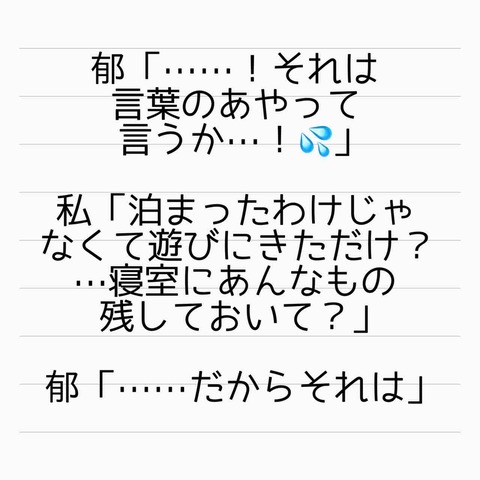 郁「……！それは
言葉のあやって
言うか…！💦」
私「泊まったわけじゃ
なくて遊びにきただけ？
…寝室にあんなもの
残しておいて？」
郁「……だからそれは」